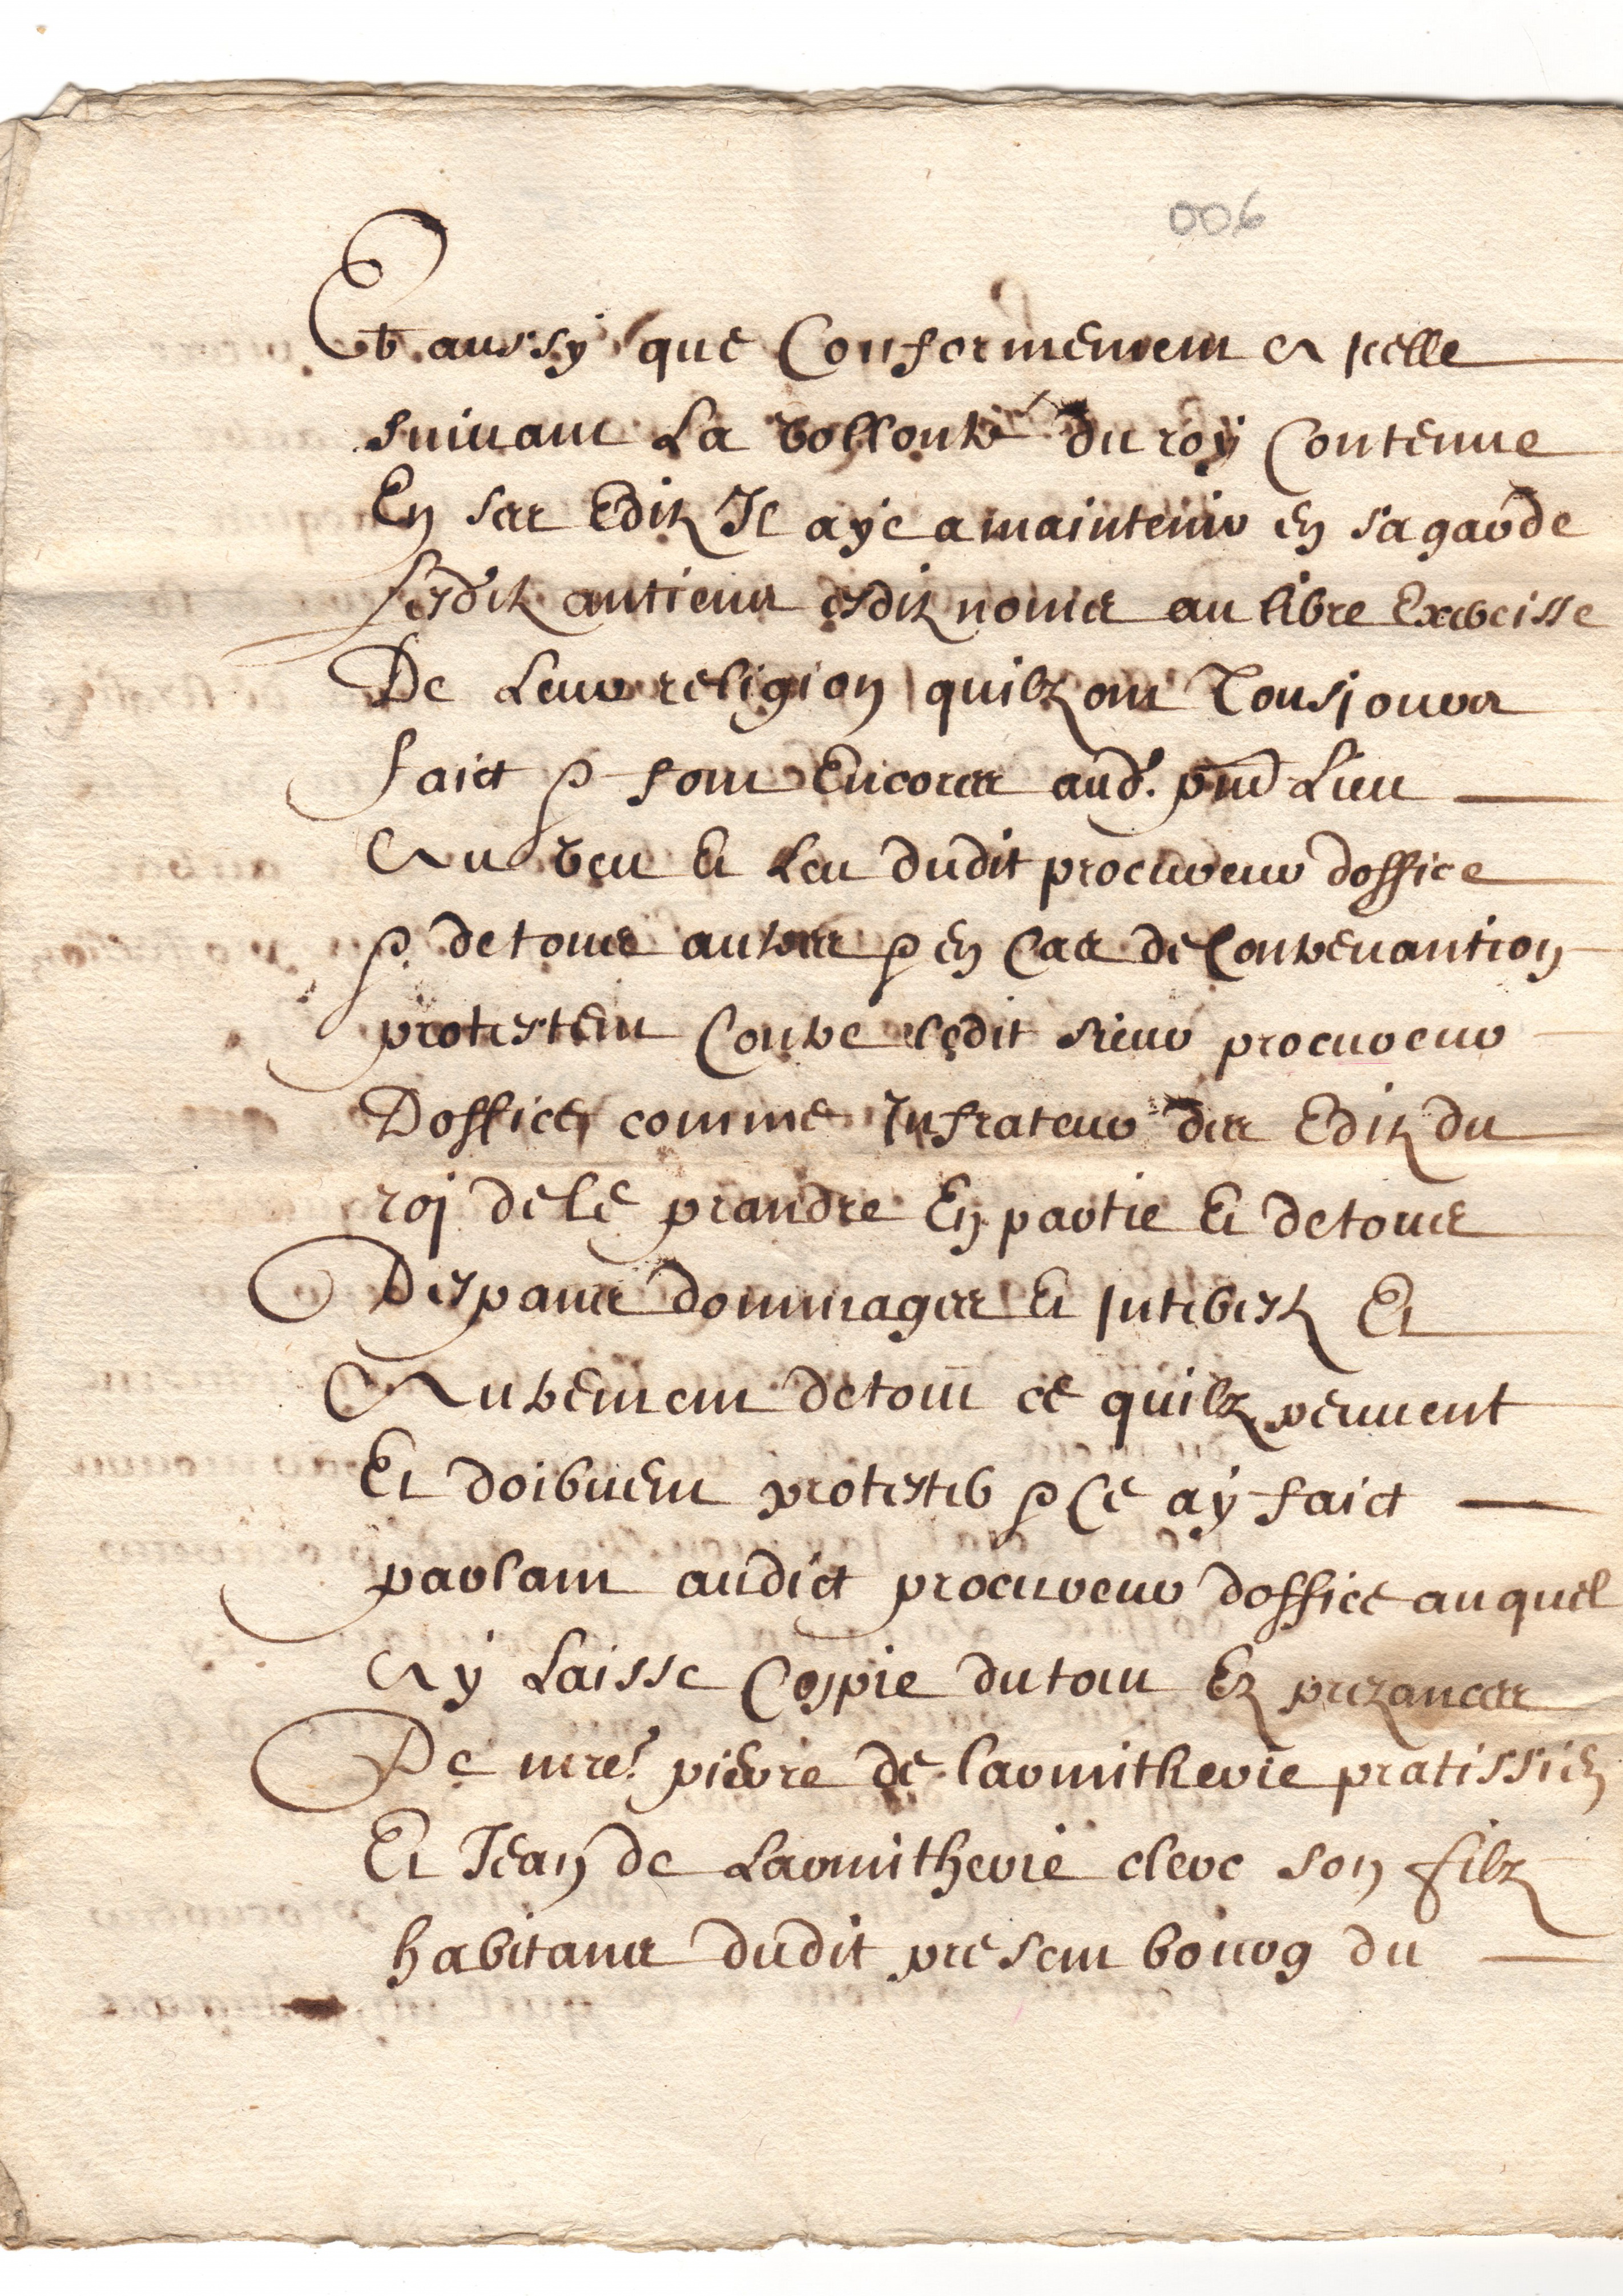 006
Et aussy que Conformement a icelle
suivant La vollonté du roy Contenue
En ses Editz Il aye a maintenir en sa garde
lesditz antiens esditz noms au libre Exercisse
De Leur religion quilz ont Tousjours
faict & font Encores aud. pnt Lieu
Au veu et Leu dudit procureur doffice
& de tous autres & en Cas de Contrevantion
protestent Contre ledit sieur procureur
Doffice comme Infrateur des Editz du
roj de le prandre En partie et de tous
Despans dommages et Interestz Et
Autrement de tout ce quilz peuvent
Et doibvent protester & Ce ay faict
parlant audict procureur doffice auquel
Ay Laisse Coppie du tout Ez prezances
De mre. pierre de Larmitherie pratissien
Et Jean de Larmitherie clerc son filz
habitans dudit present bourg du